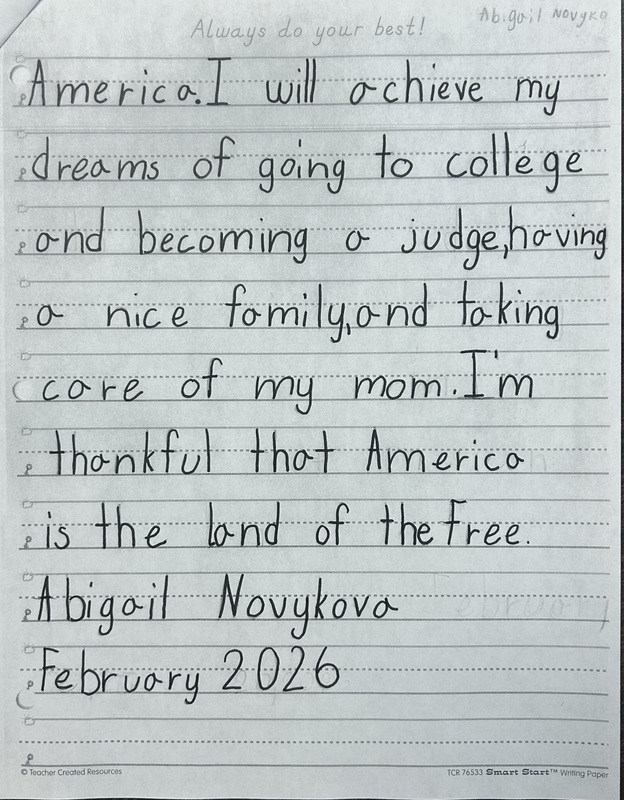 Abigail Novyko
Always do your best!
America.I will achieve my
dreams of going to college
and becoming a judge,having
a nice family,and taking
care of my mom.I'm
thankful that America
is the land of the free.
Abigail Novykova
February 2026
© Teacher Created Resources
TCR 76533 Smart Start™ Writing Paper